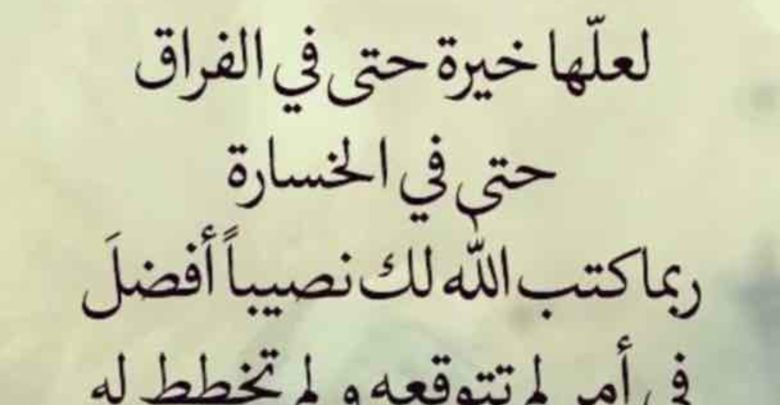 لعلّها خيرة حتى في الفراق
حتى في الخسارة
ربما كتب الله لك نصيباً أفضلَ
في أمر لم تتوقعه و لم تخطط له